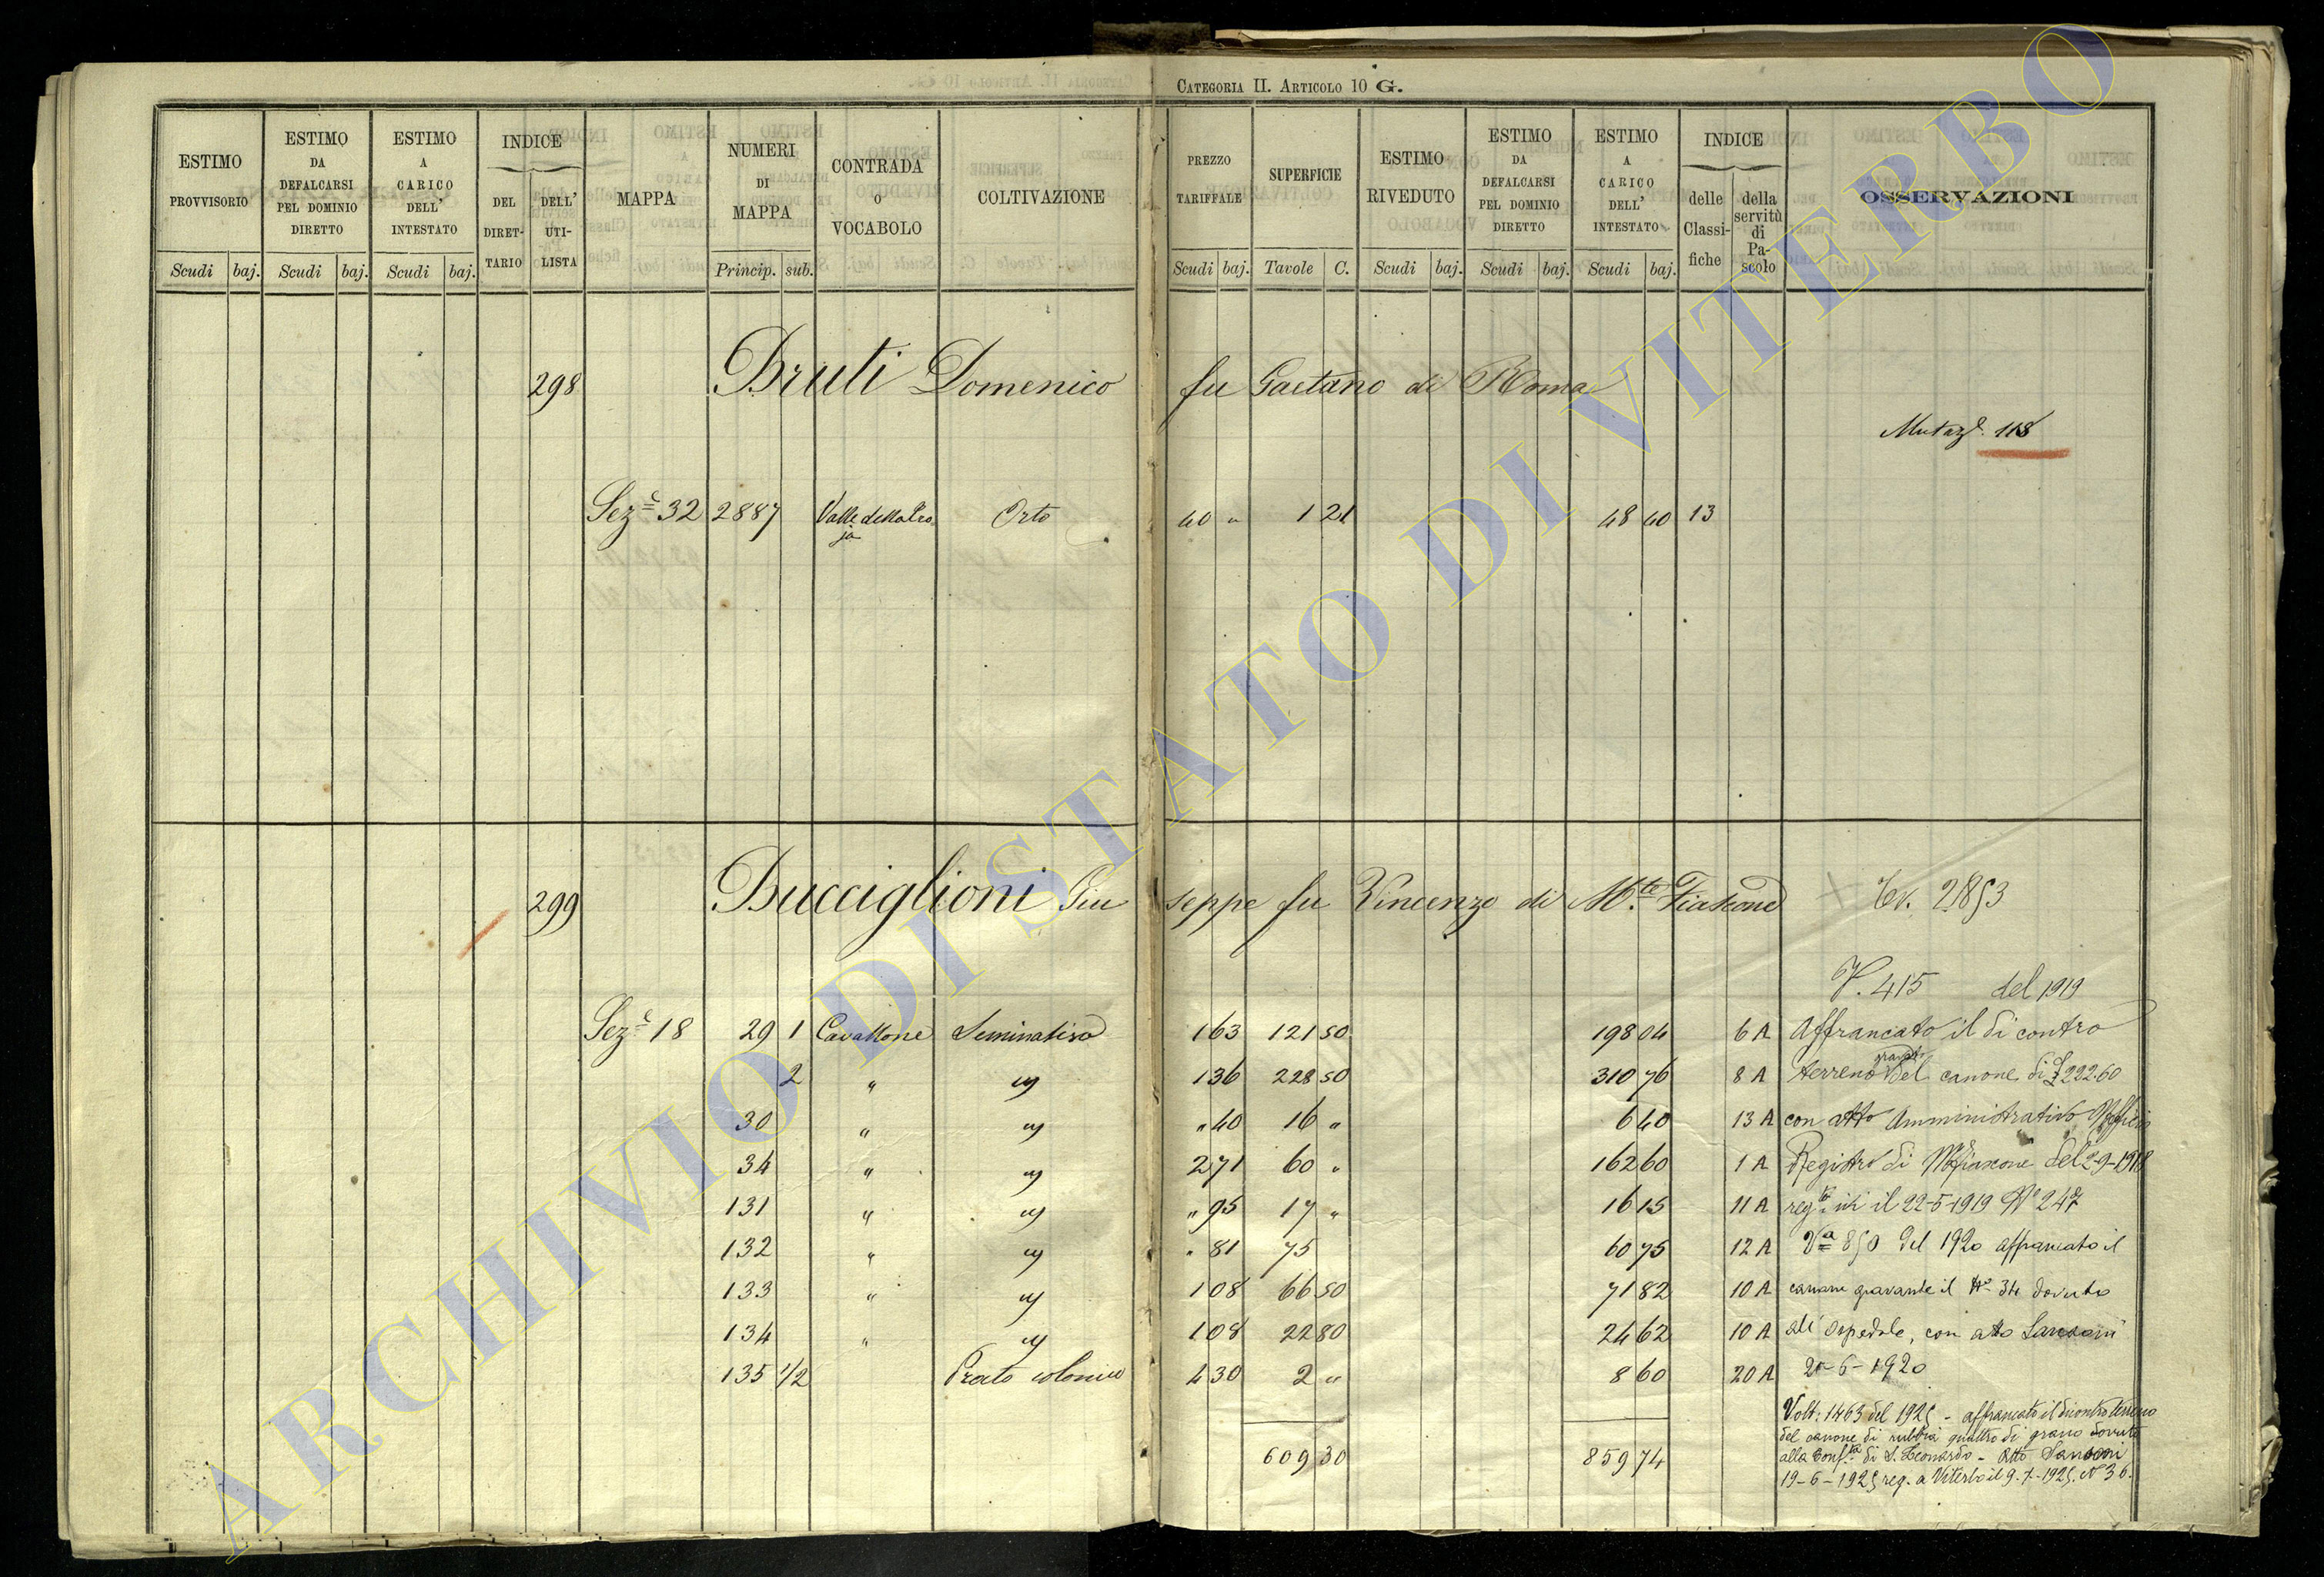 CATEGORIA II. ARTICOLO 10 G.
ESTIMO PROVVISORIO
ESTIMO DA DEFALCARSI PEL DOMINIO DIRETTO
ESTIMO A CARICO DELL' INTESTATO
INDICE
DEL DIRET-TARIO
DELL' UTI-LISTA
MAPPA
NUMERI DI MAPPA
CONTRADA O VOCABOLO
COLTIVAZIONE
PREZZO TARIFFALE
SUPERFICIE
ESTIMO RIVEDUTO
ESTIMO DA DEFALCARSI PEL DOMINIO DIRETTO
ESTIMO A CARICO DELL' INTESTATO
INDICE
delle Classi-fiche
della servitù di Pa-scolo
OSSERVAZIONI
Scudi baj. Scudi baj. Scudi baj. Princip. sub. Scudi baj. Tavole C. Scudi baj. Scudi baj. Scudi baj.
298 Bruti Domenico fu Gaetano di Roma
Mutaz. 118
Sez.e 32 2887 Valle della Tro Orto 40 " 1 21 48 40 13
ja
299 Bucciglioni Giu seppe fu Vincenzo di M.te Fiascone 2853
V. 415 del 1919
Sez.e 18 29 1 Cavallone Seminativo 1 63 121 50 198 04 6 A Affrancato il di contro
2 " " 1 36 228 50 310 76 8 A terreno gravato del canone di £ 222.60
30 " " " 40 16 " 6 40 13 A con atto Amministrativo
34 " " 2 71 60 " 162 60 1 A Registro di Mfiascone del 2-9-1918
131 " " " 95 17 " 16 15 11 A reg.to ivi il 22-5-1919 N° 247
132 " " " 81 75 60 75 12 A Va 850 del 1920 affrancato il
133 " " 1 08 66 50 71 82 10 A canone gravante il N° 34 dovuto
134 " " 1 08 22 80 24 62 10 A all'Ospedale, con atto Sansoni
135 1/2 Prato colonico 4 30 2 " 8 60 20 A 6-1920
609 30 859 74
Volt: 1463 del 1925 - affrancato il dicontro terreno
del canone di rubbia quattro di grano dovuto
alla Conf.ta di S. Leonardo - Atto Sansoni
19-6-1925 reg. a Viterbo il 9-7-1925 N 36.
ARCHIVIO DI STATO DI VITERBO